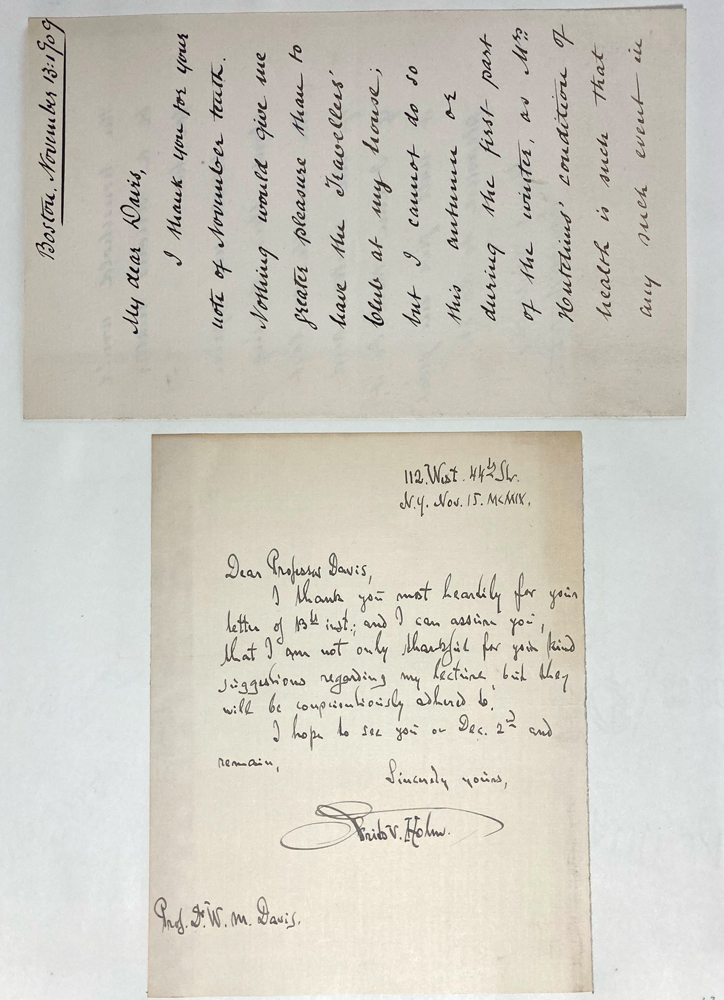 Boston. November 13: 1909
My dear Davis,
I thank you for your
note of November tenth.
Nothing would give me
greater pleasure than to
have the Travellers'
Club at my house;
but I cannot do so
this autumn or
during the first part
of the winter, as Mrs
Hutchins' condition of
health is such that
any such event in
112. West. 44th St.
N.Y. Nov. 15. MCMIX.
Dear Professor Davis,
I thank you most heartily for your
letter of 13th inst.; and I can assure you,
that I am not only thankful for your kind
suggestions regarding my lecture but they
will be conscientiously adhered to.
I hope to see you on Dec. 2nd and
remain,
Sincerely yours,
Frits V. Holm.
Prof. Dr. W. M. Davis.